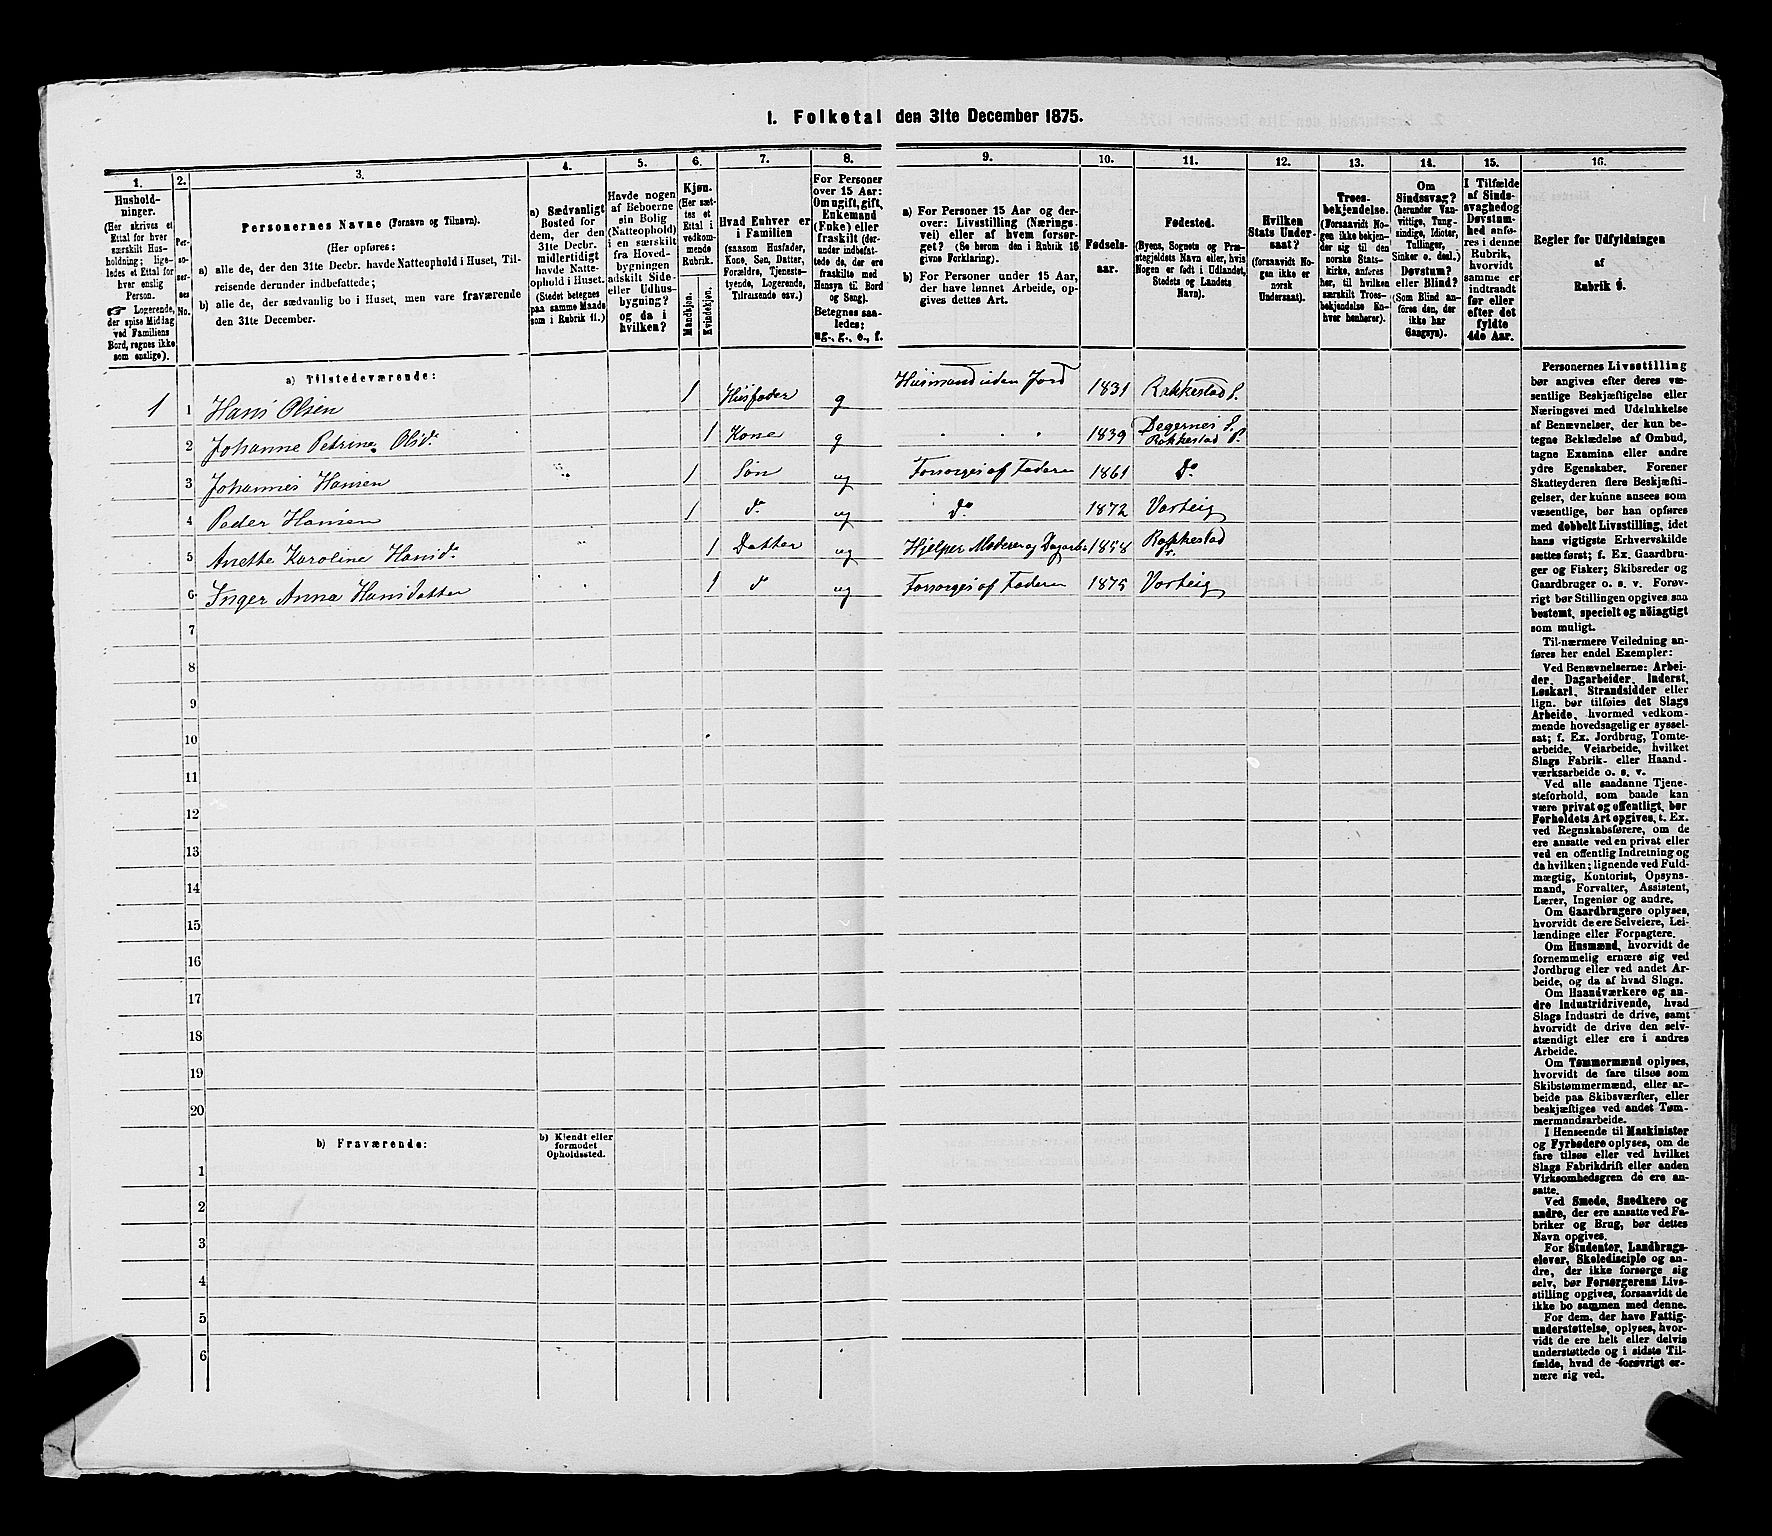 1. Folketal den 31te December 1875.
1.
2.
3.
4.
5.
6.
7.
8.
9.
10.
11.
12.
13.
14.
15.
16.
Husholdninger.
(Her skrives et
Ettal for hver
særskilt Husholdning; ligeledes
et Ettal for
hver enslig
Person.
☞ Logerende,
der spise Middag
ved Familiens
Bord, regnes ikke
som enslige).
Personernes No.
Personernes Navne (Fornavn og Tilnavn).
(Her opføres:
a) alle de, der den 31te Decbr. havde Natteophold i Huset, Tilreisende
derunder indbefattede;
b) alle de, der sædvanlig bo i Huset, men vare fraværende
den 31te December.
a) Sædvanligt
Bosted for
dem, der den
31te Decbr.
midlertidigt
havde Natteophold
i Huset.
(Stedet betegnes
paa samme Maade
som i Rubrik 11.)
Havde nogen
af Beboerne
sin Bolig
(Natteophold)
i en særskilt
fra Hovedbygningen
adskilt Side-
eller Udhusbygning?
og da i
hvilken?
Kjøn.
(Her sættes
et
Ettal i
vedkommende
Rubrik.
Mandkjøn.
Kvindekjøn.
Hvad Enhver er
i Familien
(saasom Husfader,
Kone, Søn, Datter,
Forældre, Tjenestetyende,
Logerende,
Tilreisende osv.)
For Personer
over 15 Aar:
Om ugift, gift,
Enkemand
(Enke) eller
fraskilt (derunder
indbefattede
de, der ere
fraskilte med
Hensyn til Bord
og Seng).
Betegnes saaledes:
ug., g., e., f.
a) For Personer 15 Aar og derover:
Livsstilling (Næringsvei)
eller af hvem forsørget?
(Se herom den i Rubrik 16
givne Forklaring).
b) For Personer under 15 Aar,
der have lønnet Arbeide, opgives
dettes Art.
Fødselsaar.
Fødested.
(Byens, Sognets og Præstegjeldets
Navn eller, hvis
Nogen er født i Udlandet,
Stedets og Landets
Navn).
Hvilken
Stats Undersaat?
(forsaavidt Nogen
ikke er
norsk
Undersaat).
Troesbekjendelse.
(Forsaavidt Nogen
ikke bekjender
sig til den
norske Statskirke,
anføres
her, til hvilken
særskilt Troesbekjendelse
Enhver
henhører).
Om
Sindssvag?
(herunder Vanvittige,
Tungsindige,
Idioter,
Tullinger,
Sinker o. desl.)
Døvstum?
eller Blind?
(Som Blind anføres
den, der
ikke har
Gangsyn).
I Tilfælde
af Sindssvaghed
og
Døvstumhed
anføres
i denne
Rubrik,
hvorvidt
samme er
indtraadt
før eller
efter det
fyldte
4de Aar.
Regler for Udfyldningen
af
Rubrik 9.
a) Tilstedeværende:
1 1 Hans Olsen 1 Husfader g Husmand uden Jord 1831 Rakkestad S.
2 Johanne Petrine Olsd. 1 Kone g 1839 Degernes S. Rakkestad P.
3 Johannes Hansen 1 Søn ug Forsørges af Faderen 1861 Do
4 Peder Hansen 1 do ug do 1872 Varteig
5 Anette Karoline Hansd. 1 Datter ug Hjelper Moderen og Dagarb. 1858 Rakkestad
6 Inger Anna Hansdatter 1 do ug Forsørges af Faderen 1875 Varteig
7
8
9
10
11
12
13
14
15
16
17
18
19
20
b) Fraværende:
b) Kjendt eller
formodet
Opholdssted.
1
2
3
4
5
6
Personernes Livsstilling
bør angives efter deres væsentlige
Beskjæftigelse eller
Næringsvei med Udelukkelse
af Benævnelser, der kun betegne
Beklædelse af Ombud,
tagne Examina eller andre
ydre Egenskaber. Forener
Skatteyderen flere Beskjæftigelser,
der kunne ansees som
væsentlige, bør han opføres
med dobbelt Livsstilling, idet
hans vigtigste Erhvervskilde
sættes først; f. Ex. Gaardbruger
og Fisker; Skibsreder og
Gaardbruger o. s. v. Forøvrigt
bør Stillingen opgives saa
bestemt, specielt og nøiagtigt
som muligt.
Til nærmere Veiledning anføres
her endel Exempler:
Ved Benævnelserne: Arbeider,
Dagarbeider, Inderst,
Løskarl, Strandsidder eller
lign. bør tilføies det Slags
Arbeide, hvormed vedkommende
hovedsagelig er sysselsat;
f. Ex. Jordbrug, Tomtearbeide,
Veiarbeide, hvilket
Slags Fabrik- eller Haandværksarbeide
o. s. v.
Ved alle saadanne Tjenesteforhold,
som baade kan
være privat og offentligt, bør
Forholdets Art opgives, t. Ex.
ved Regnskabsførere, om de
ere ansatte ved en privat eller
ved en offentlig Indretning og
da hvilken; lignende ved Fuldmægtig,
Kontorist, Opsynsmand,
Forvalter, Assistent,
Lærer, Ingeniør og andre.
Om Gaardbrugere oplyses,
hvorvidt de ere Selveiere, Leilændinge
eller Forpagtere.
Om Husmænd, hvorvidt de
fornemmelig ernære sig ved
Jordbrug eller ved andet Arbeide,
og da af hvad Slags.
Om Haandværkere og andre
Industridrivende, hvad
Slags Industri de drive, samt
hvorvidt de drive den selvstændigt
eller ere i andres
Arbeide.
Om Tømmermænd oplyses,
hvorvidt de fare tilsøs som
Skibstømmermænd, eller arbeide
paa Skibsværfter, eller
beskjæftiges ved andet Tømmermandsarbeide.
I Henseende til Maskinister
og Fyrbødere oplyses, om de
fare tilsøs eller ved hvilket
Slags Fabrikdrift eller anden
Virksomhedsgren de ere ansatte.
Ved Smede, Snedkere og
andre, der ere ansatte ved Fabriker
og Brug, bør dettes
Navn opgives.
For Studenter, Landbrugselever,
Skoledisciple og andre,
der ikke forsørge sig
selv, bør Forsørgerens Livsstilling
opgives, forsaavidt de
ikke bo sammen med denne.
For dem, der have Fattigunderstøttelse,
oplyses, hvorvidt
de ere helt eller delvis
understøttede og i sidste Tilfælde,
hvad de forøvrigt ernære
sig ved.